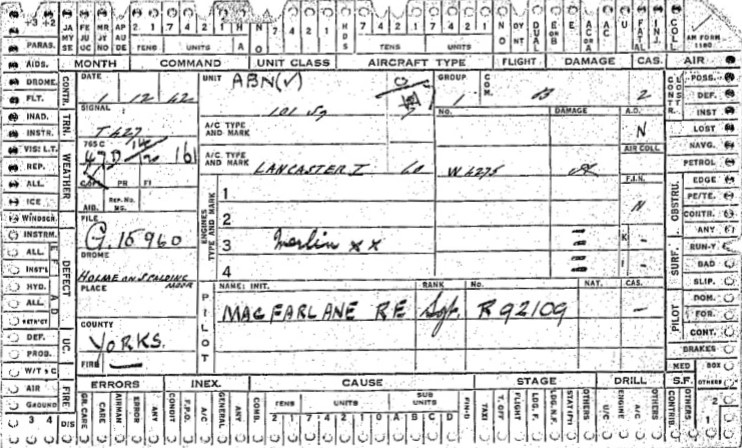 +3 +2 JA MY SE FE JU UC MR JY NO AP AU DE 2 1 7 4 2 1 A H N O 7 4 2 1 7 4 2 1 H D S 7 4 2 1 7 4 2 1 N O DY NT DUAL E OR B E AC OR A AC U FATAL INJ. COLL
PARAS. TENS UNITS TENS UNITS AM FORM 1180
AIDS. MONTH COMMAND UNIT CLASS AIRCRAFT TYPE FLIGHT DAMAGE CAS. AIR
DROME. CONTR. DATE UNIT ABN(√) GROUP COM. CONSTR. POSS.
FLT. 1 12 42 1 B 2 DEF.
INAD. TRN. SIGNAL: 101 Sq No. DAMAGE A.D. INST
INSTR. T 427 A/C TYPE AND MARK N LOST
VIS: L.T. WEATHER 765 C AIR COLL NAVG.
REP. 47D 161 A/C TYPE AND MARK LANCASTER I 60 W4275 PETROL
ALL CAT. PR FI F.I.N. OBSTRU. EDGE
ICE AIB. REP. NO. MS. ENGINES TYPE AND MARK 1 N PE/TE.
WINDSCR. FILE 2 CONTR.
INSTRM. DEFECT G.15960 3 Merlin XX K - ANY
ALL DROME 4 I - SURF. RUN-Y.
INST'L HOLME ON SPALDING MOOR BAD
HYD. PLACE PILOT NAME: INIT. RANK No. NAT. CAS. SLIP.
ALL MACFARLANE RE Sgt. R92109 - PILOT DOM.
RETRACT COUNTY FOR.
DEF. UC. YORKS. CONT.
PROB. FIRE - BRAKES
W/T & C MED BOX
AIR FIRE ERRORS INEX. CAUSE STAGE DRILL S.F. OTHERS
GROUND GR. CARE CARE AIRMAN ERROR ANY CONDIT F.P.O. A/C GENERAL ANY COMB. TENS UNITS SUB UNITS FIN-D TAXI T. OFF FLIGHT LDG. F. LDG. N.F. STAT(FI) OTHERS U/C ENGINE A/C OTHERS CONTRIB. OTHERS 2
3 4 D/S 2 1 7 4 2 1 0 A B C D 1